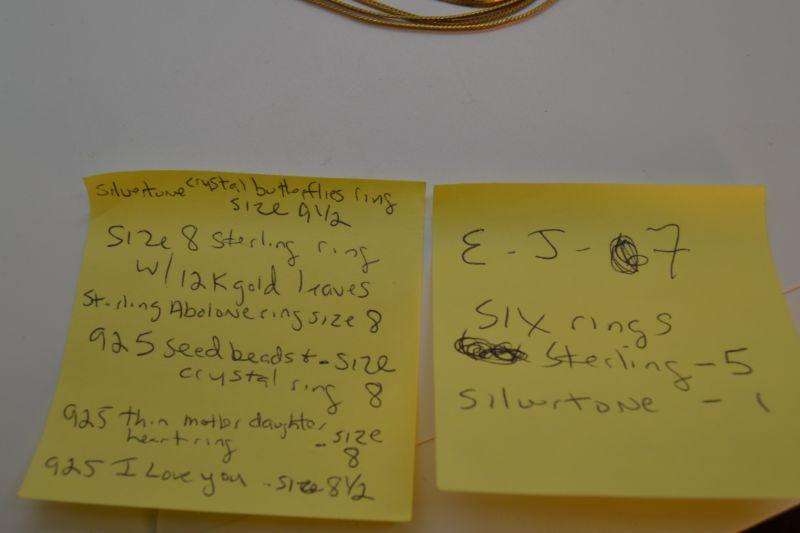 silvertone crystal butterflies ring
size 9 1/2
Size 8 sterling ring
w/ 12K gold leaves
Sterling Abolone ring size 8
925 seed beads + - size
crystal ring 8
925 thin mother daughter
heart ring - size
8
925 I Love you - size 8 1/2
E - J - 7
SIX rings
Sterling - 5
Silvertone - 1